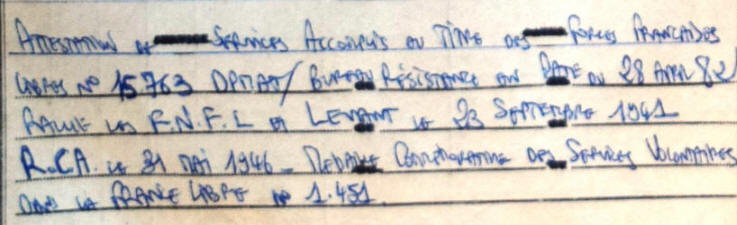 ATTESTATION DE SERVICES ACCOMPLIS AU TITRE DES FORCES FRANÇAISES
LIBRES N° 15763 DPMAT/ BUREAU RÉSISTANCE EN DATE DU 28 AVRIL 82
RALLIE LES F.N.F.L AU LEVANT LE 23 SEPTEMBRE 1941
R.CA. LE 31 MAI 1946 - MEDAILLE COMMÉMORATIVE DES SERVICES VOLONTAIRES
DANS LA FRANCE LIBRE N° 1.451.